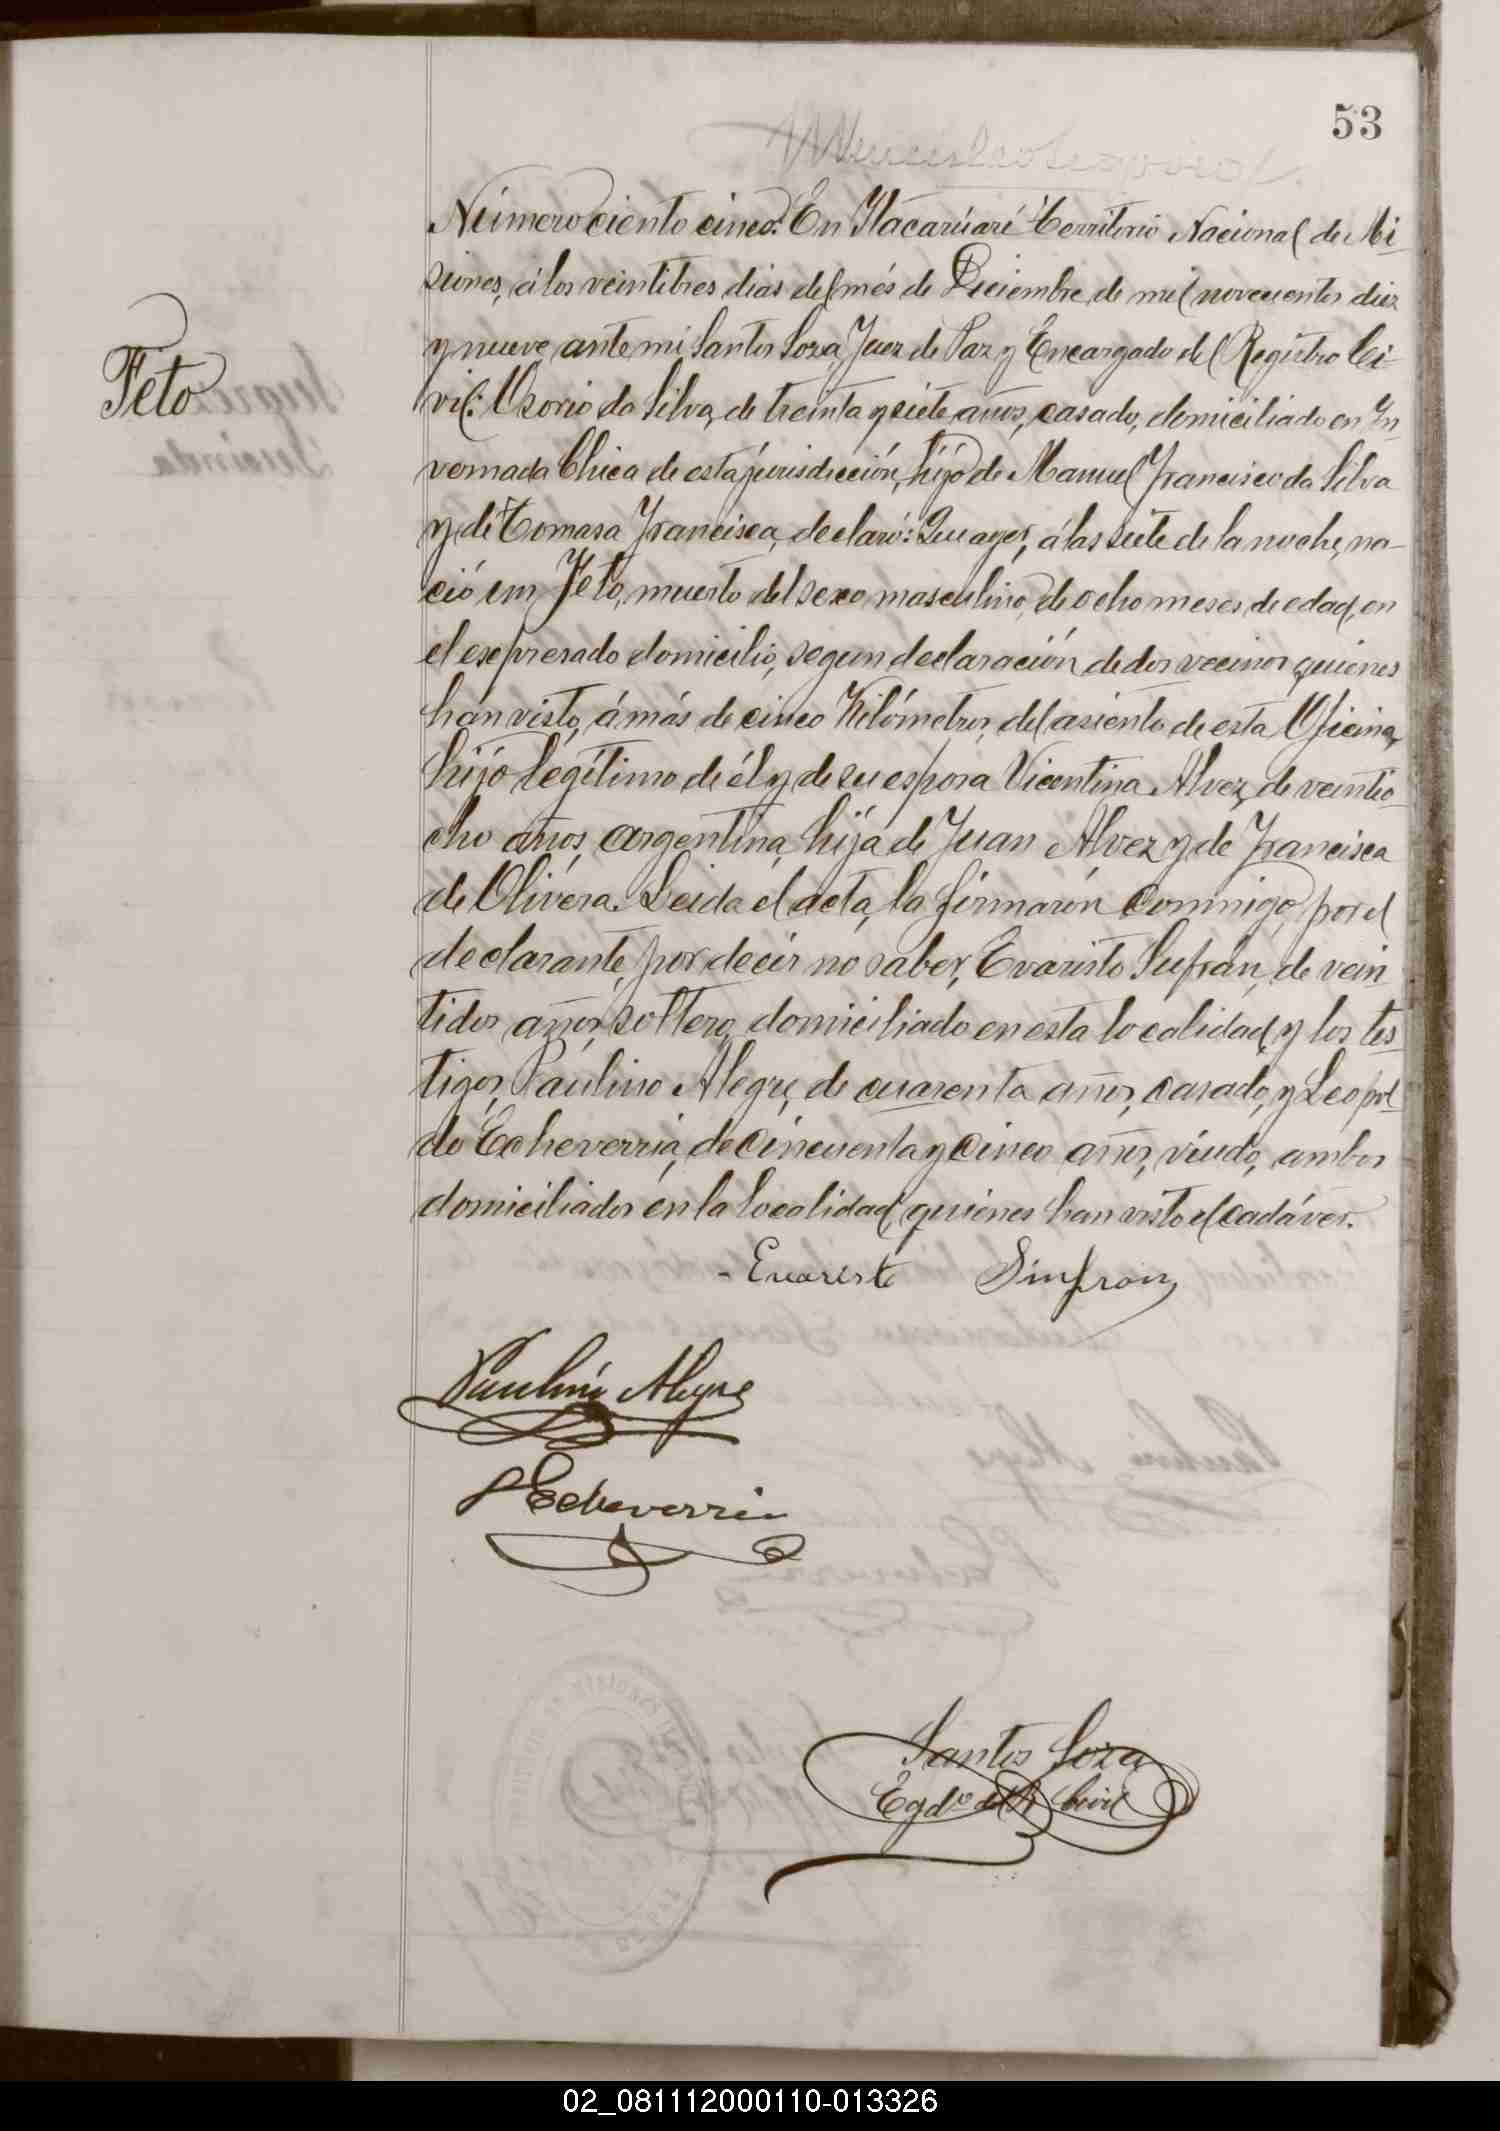 53
Feto
Número ciento cinco: En Itacarúaré Territorio Nacional de Mi-
siones, á los veintitres dias del més de Diciembre de mil novecientos diez
y nueve, ante mi, Santos Loza, Juez de Paz y Encargado del Registro Ci-
vil: Osorio da Silva, de treinta y siete años, casado, domiciliado en In-
vernada Chica de esta jurisdicción, hijo de Manuel Francisco da Silva
y de Tomasa Francisca, declaró: Que ayer, á las siete de la noche, na-
ció un Feto, muerto del sexo masculino, de ocho meses de edad, en
el expresado domicilio, segun declaración de dos vecinos quienes
han visto, á más de cinco Kilómetros, del asiento de esta Oficina,
hijo legítimo de él y de su esposa Vicentina Alvez, de veintio-
cho años, argentina, hija de Juan Alvez y de Francisca
de Olivera. Leida el acta, la firmarón conmigo, por el
declarante, por decir no saber, Evaristo Sufran, de vein
tidos años, soltero, domiciliado en esta localidad, y los tes-
tigos, Paulino Alegre, de cuarenta años, casado, y Leopol-
do Echeverria, de cincuenta y cinco años, viudo, ambos
domiciliados en la localidad, quienes han visto el cadáver.
Evaristo Sinfron
Paulino Alegre
L Echeverria
Santos Loza
Egdo del R. Civil
02_081112000110-013326